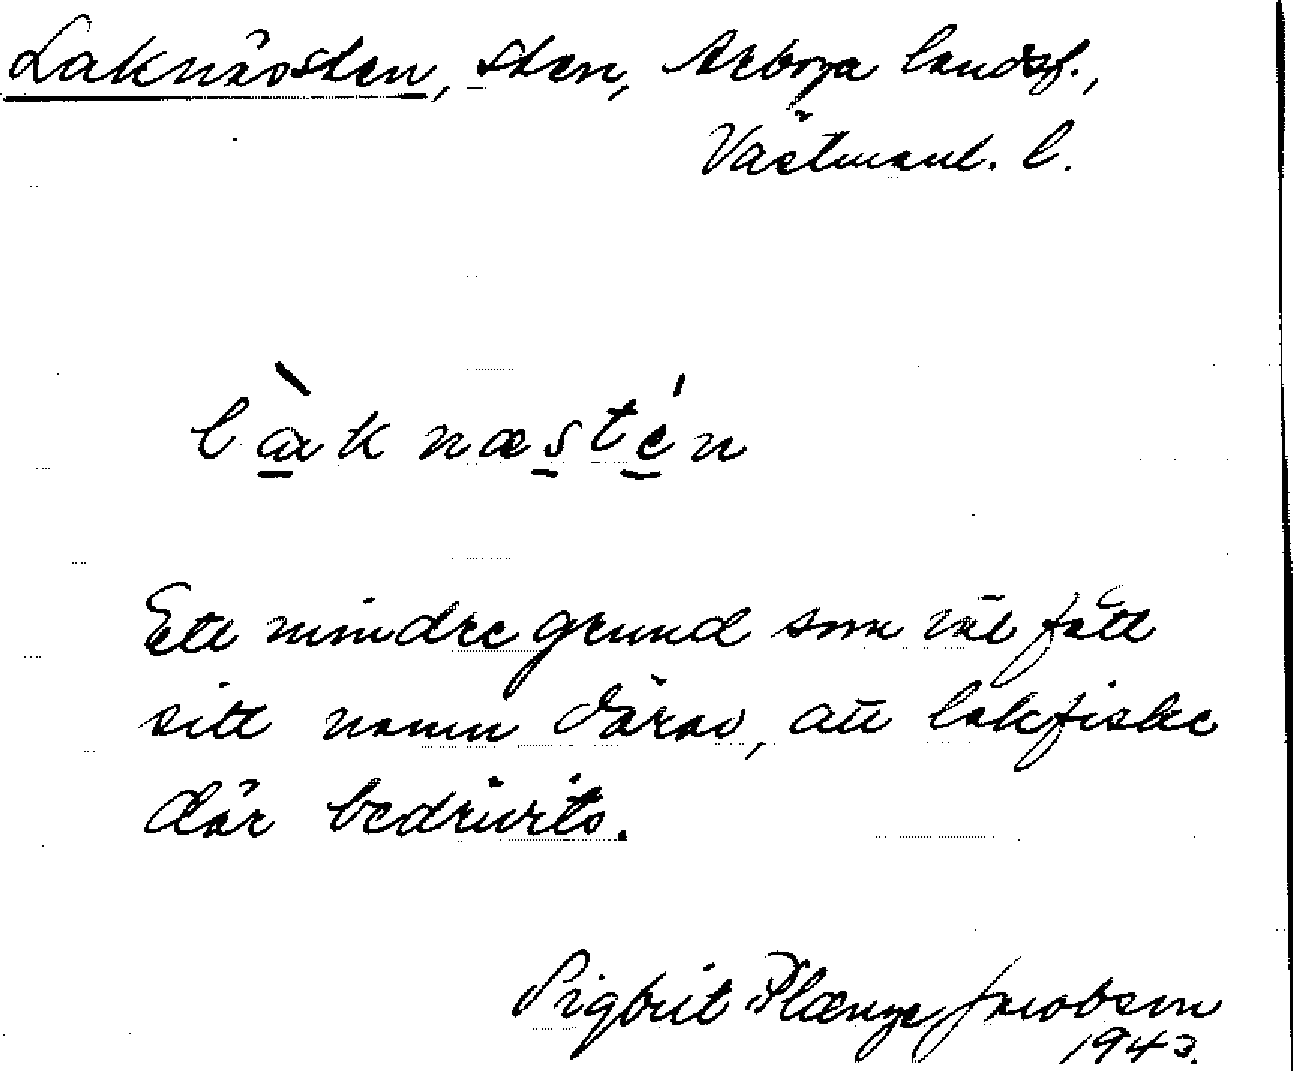 Laknässten, sten, Arboga landsf.,
Västmanl. l.
làknæstén
Ett mindre grund som väl fått
sitt namn därav, att lakfiske
där bedrivits.
Sigbrit Plænge Jacobson
1943.